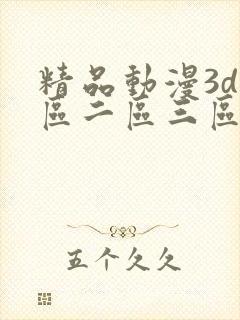 精品動漫3d
區二區三區
五个久久